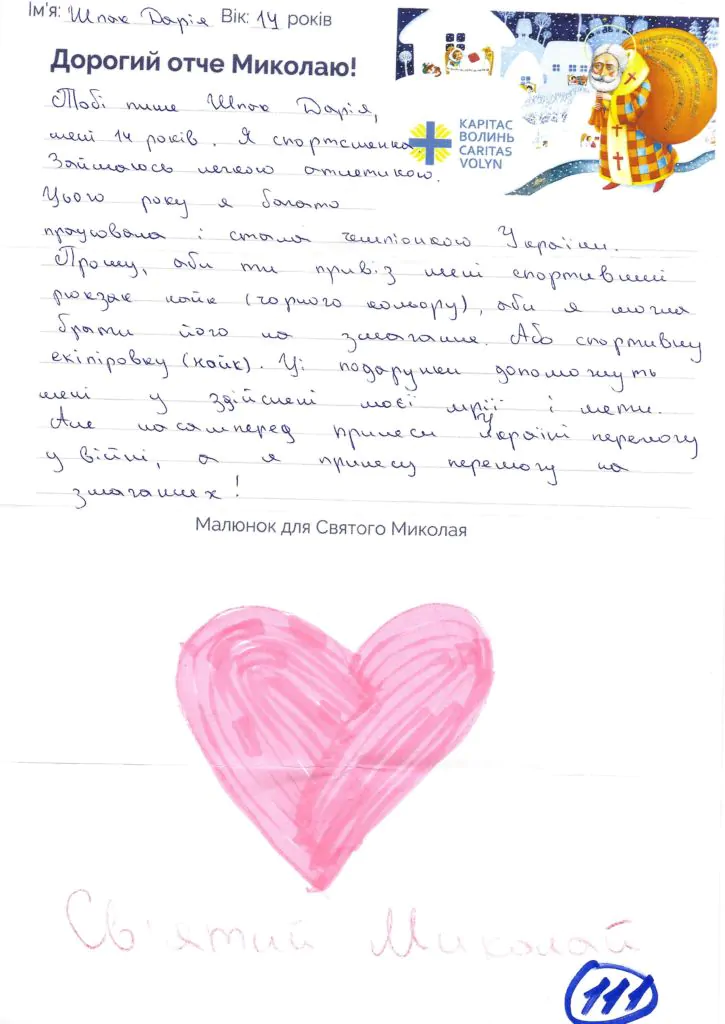 Ім'я: Шпак Дарія Вік: 14 років
Дорогий отче Миколаю!
КАРІТАС
ВОЛИНЬ
CARITAS
VOLYN
Тобі пише Шпак Дарія,
мені 14 років. Я спортсменка
Займаюсь легкою атлетикою.
Цього року я багато
працювала і стала чемпіонкою України.
Прошу, аби ти привіз мені спортивний
рюкзак найк (чорного кольору), аби я могла
брати його на змагання. Або спортивну
екіпіровку (найк). Ці подарунки допоможуть
мені у здійснені моєї мрії і мети.
Але насамперед принеси Україні перемогу
у війні, а я принесу перемогу на
змаганнях!
Малюнок для Святого Миколая
Св'ятий Миколай
111